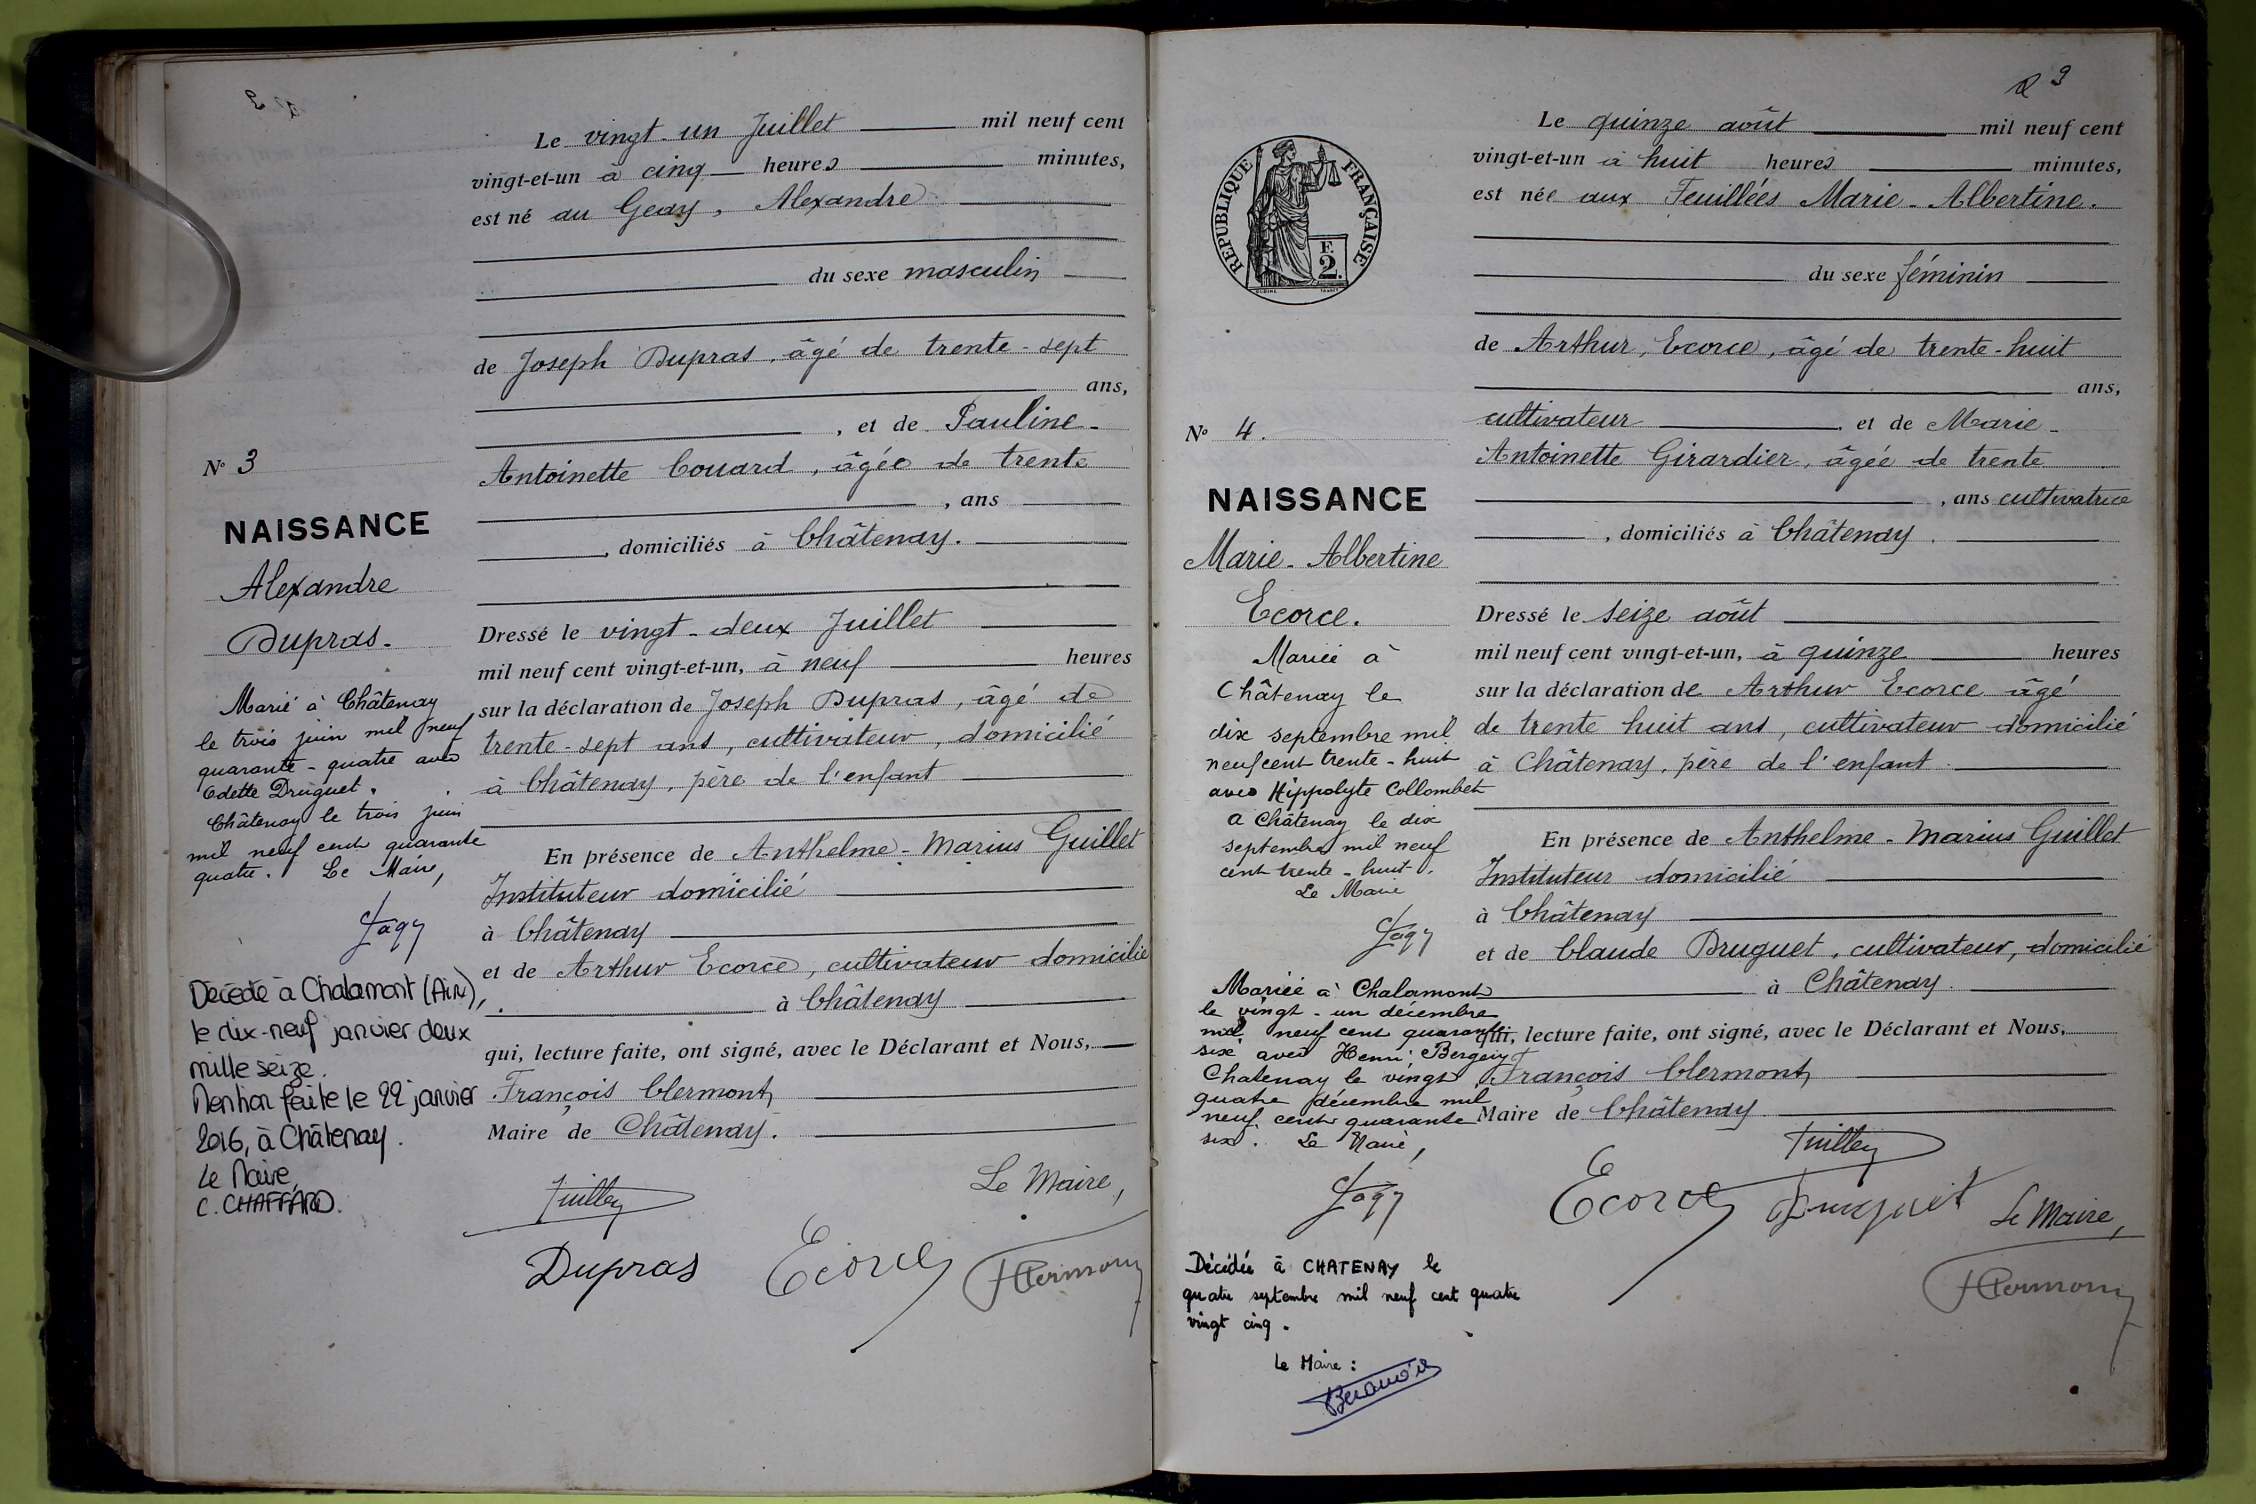 Le vingt-un Juillet mil neuf cent
vingt-et-un à cinq heures minutes,
est né au Geay, Alexandre
du sexe masculin
de Joseph Dupras, âgé de trente-sept
ans,
, et de Pauline-
Antoinette Couard, âgée de trente
, ans
, domiciliés à Châtenay.
Dressé le vingt-deux Juillet
mil neuf cent vingt-et-un, à neuf heures
sur la déclaration de Joseph Dupras, âgé de
trente-sept ans, cultivateur, domicilié
à Châtenay, père de l'enfant
En présence de Anthelme-Marius Guillet
Instituteur domicilié
à Châtenay
et de Arthur Ecorce, cultivateur domicilié
à Châtenay
qui, lecture faite, ont signé, avec le Déclarant et Nous,
François Clermont,
Maire de Châtenay.
Le Maire,
Dupras
Ecorce
N° 3
NAISSANCE
Alexandre
Dupras.
Marié à Châtenay
le trois juin mil neuf
quarante-quatre avec
Odette Druguet.
Châtenay le trois juin
mil neuf cent quarante
quatre. Le Maire,
Décédé à Chalamont (Ain),
le dix-neuf janvier deux
mille seize.
Mention faite le 22 janvier
2016, à Châtenay.
Le Maire,
C. CHAFFARD.
9
RÉPUBLIQUE FRANÇAISE
F.
2.
Le quinze août mil neuf cent
vingt-et-un à huit heures minutes,
est née aux Feuillées Marie-Albertine.
du sexe féminin
de Arthur, Ecorce, âgé de trente-huit
ans,
cultivateur , et de Marie-
Antoinette Girardier, âgée de trente
, ans cultivatrice
, domiciliés à Châtenay.
Dressé le seize août
mil neuf cent vingt-et-un, à quinze heures
sur la déclaration de Arthur Ecorce âgé
de trente huit ans, cultivateur domicilié
à Châtenay, père de l'enfant.
En présence de Anthelme-Marius Guillet
Instituteur domicilié
à Châtenay
et de Claude Druguet, cultivateur, domicilié
à Châtenay.
qui, lecture faite, ont signé, avec le Déclarant et Nous,
François Clermont,
Maire de Châtenay
Ecorce
Druguet
Le Maire,
N° 4.
NAISSANCE
Marie-Albertine
Ecorce.
Mariée à
Châtenay le
dix septembre mil
neuf cent trente-huit
avec Hippolyte Collombet
a Châtenay le dix
septembre mil neuf
cent trente-huit.
Le Maire
Mariée à Chalamont
le vingt-un décembre
mil neuf cent quarante
six avec Henri Bergery
Chatenay le vingt
quatre décembre mil
neuf cent quarante
six. Le Maire,
Décédée à CHATENAY le
quatre septembre mil neuf cent quatre
vingt cinq.
Le Maire :